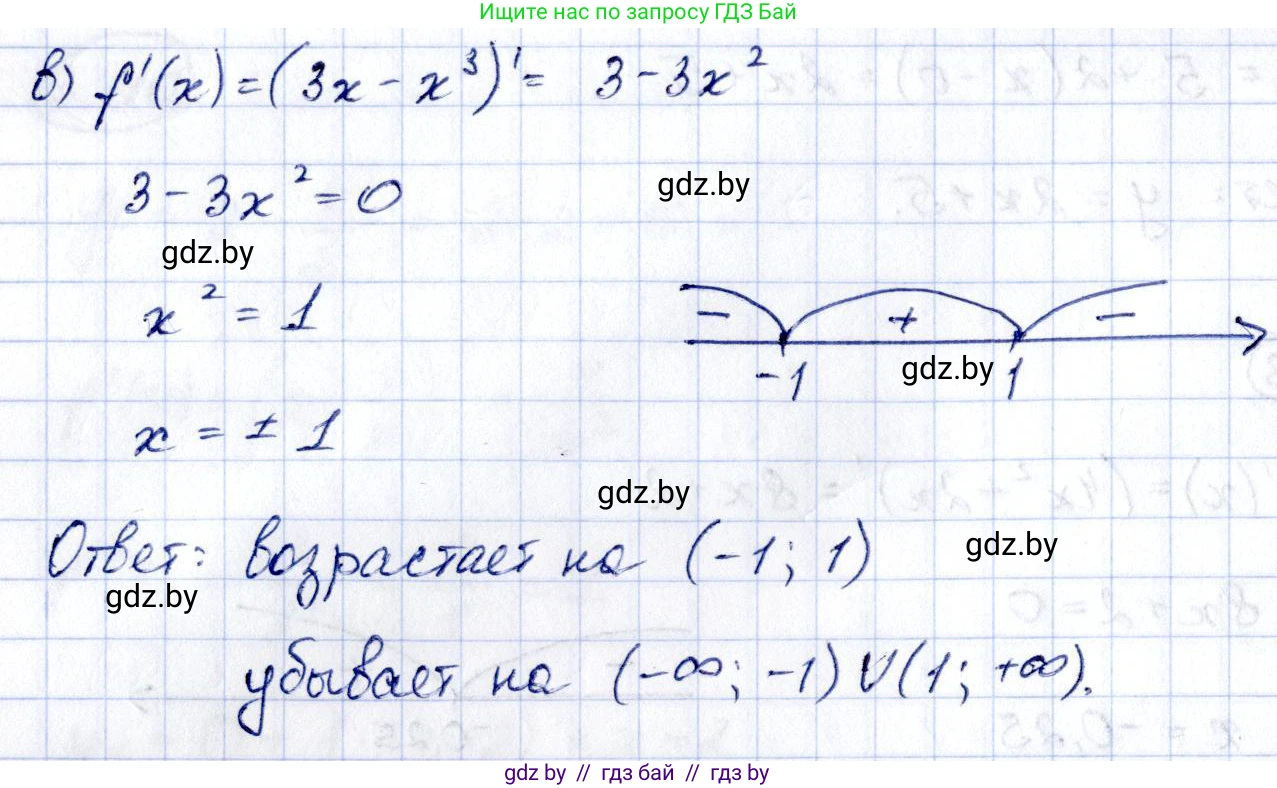 Ищите нас по запросу ГДЗ Бай
в) f'(x) = (3x - x³)' = 3 - 3x²
3 - 3x² = 0
gdz.by
gdz.by
x² = 1
- + -
-1 gdz.by 1
x = ± 1
gdz.by
Ответ: возрастает на (-1; 1)
gdz.by
gdz.by
убывает на (-∞; -1) ∪ (1; +∞).
gdz.by // гдз бай // гдз by